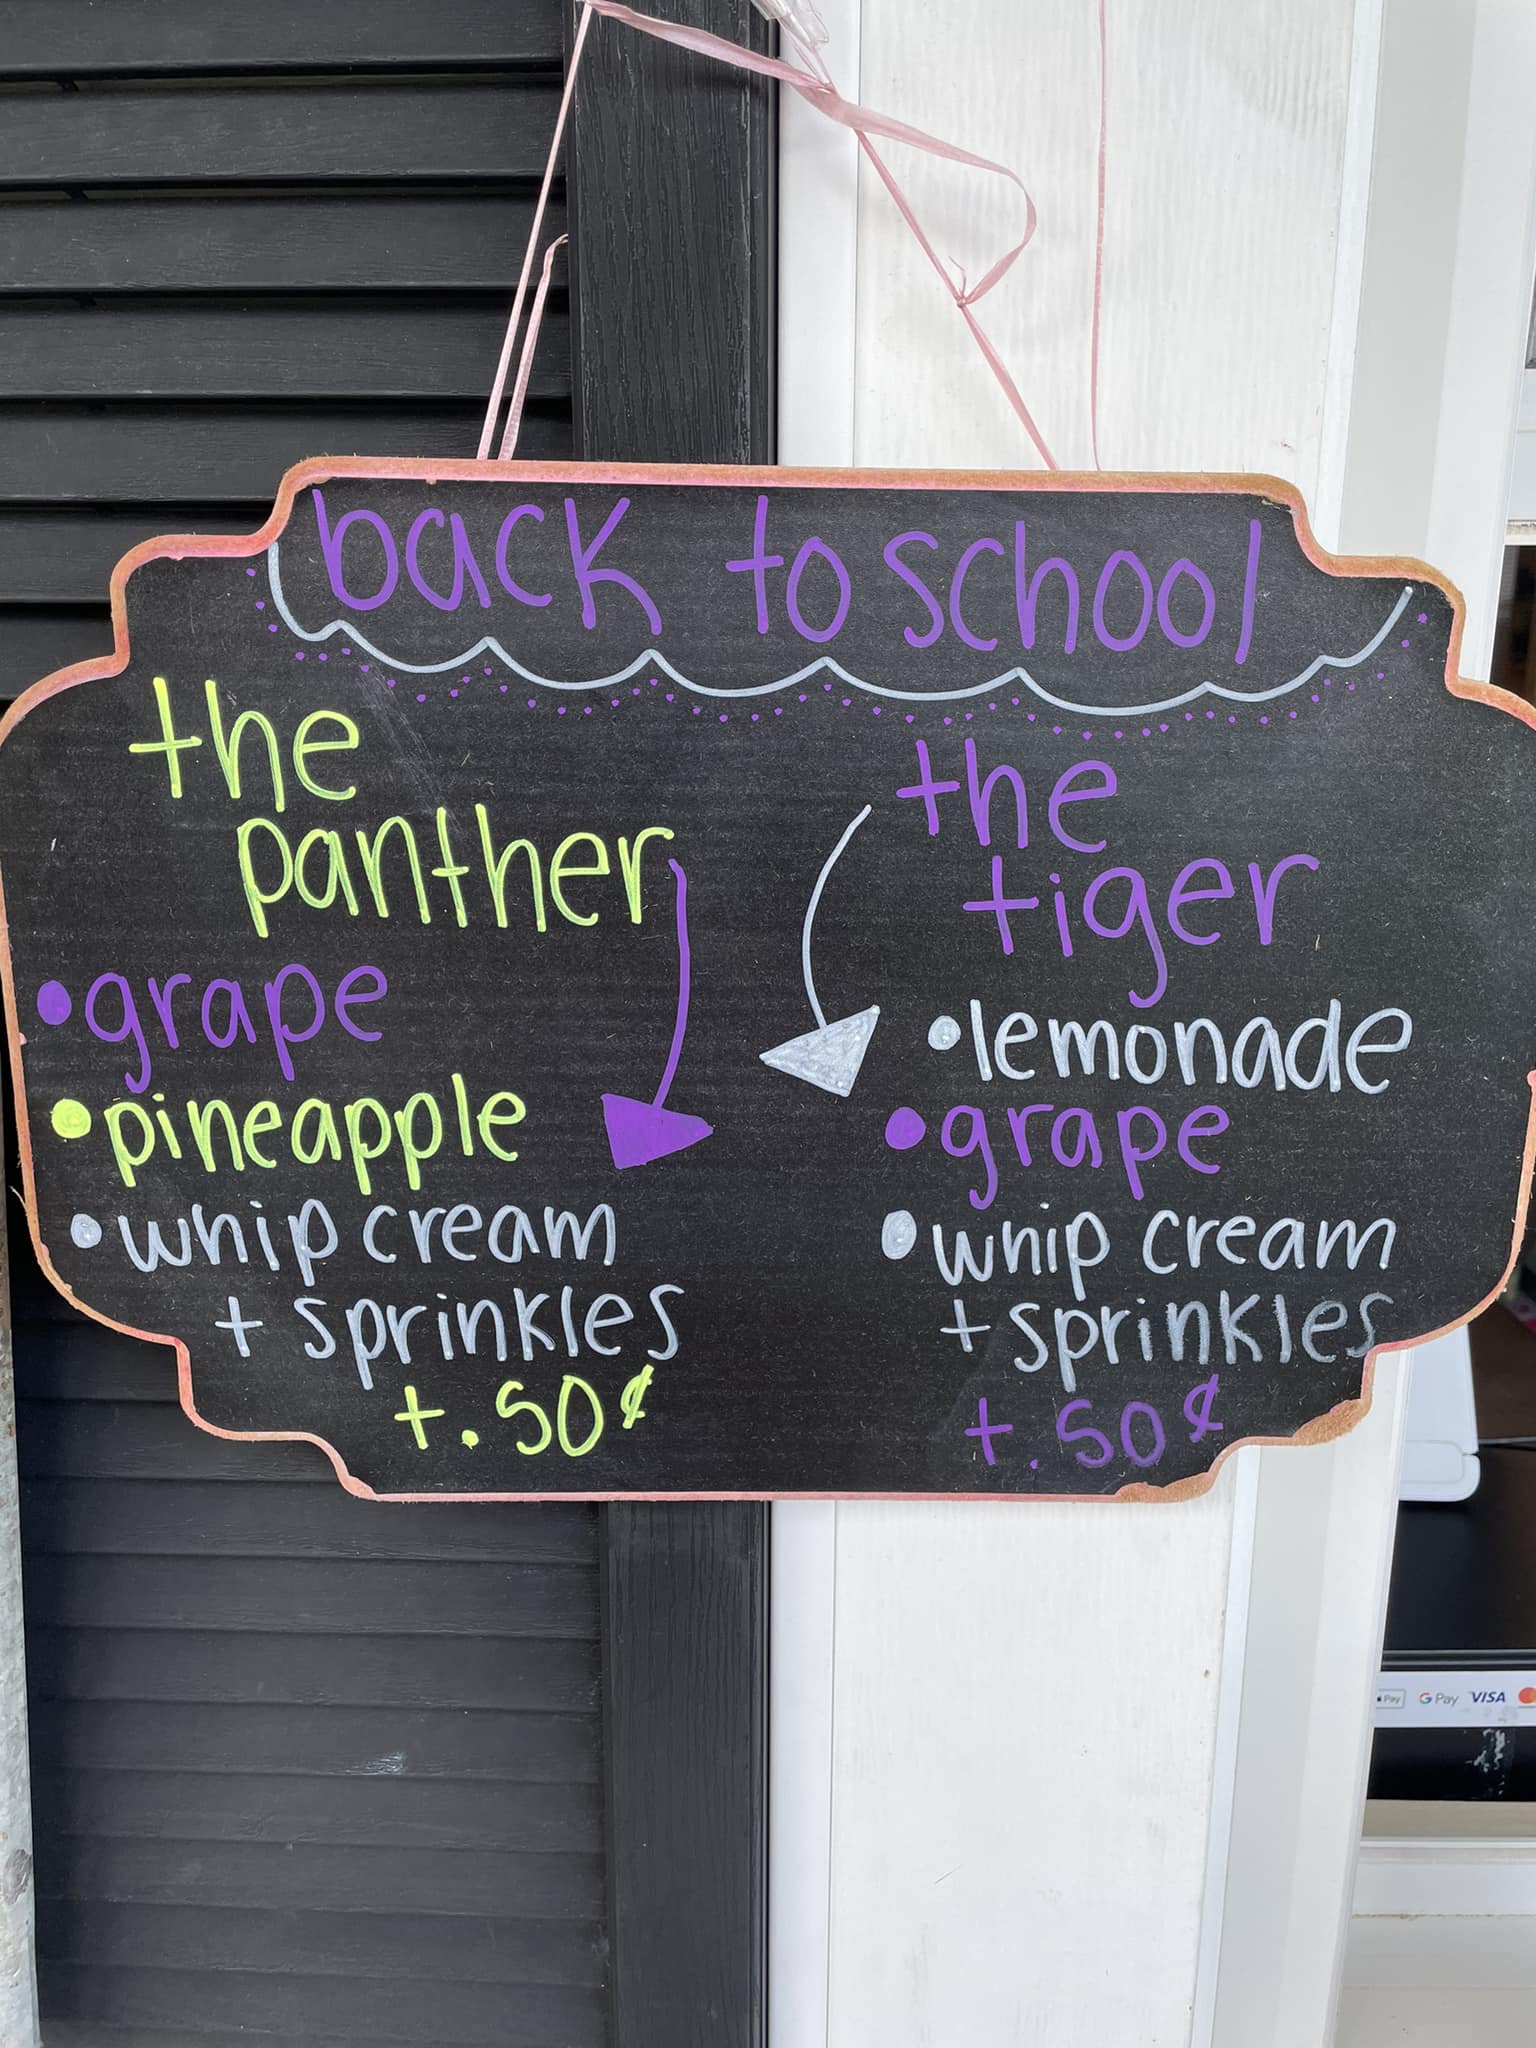 back to school
the
panther
•grape
•pineapple
•whip cream
+ sprinkles
+.50¢
the
tiger
•lemonade
•grape
•whip cream
+ sprinkles
+.50¢
Pay G Pay VISA